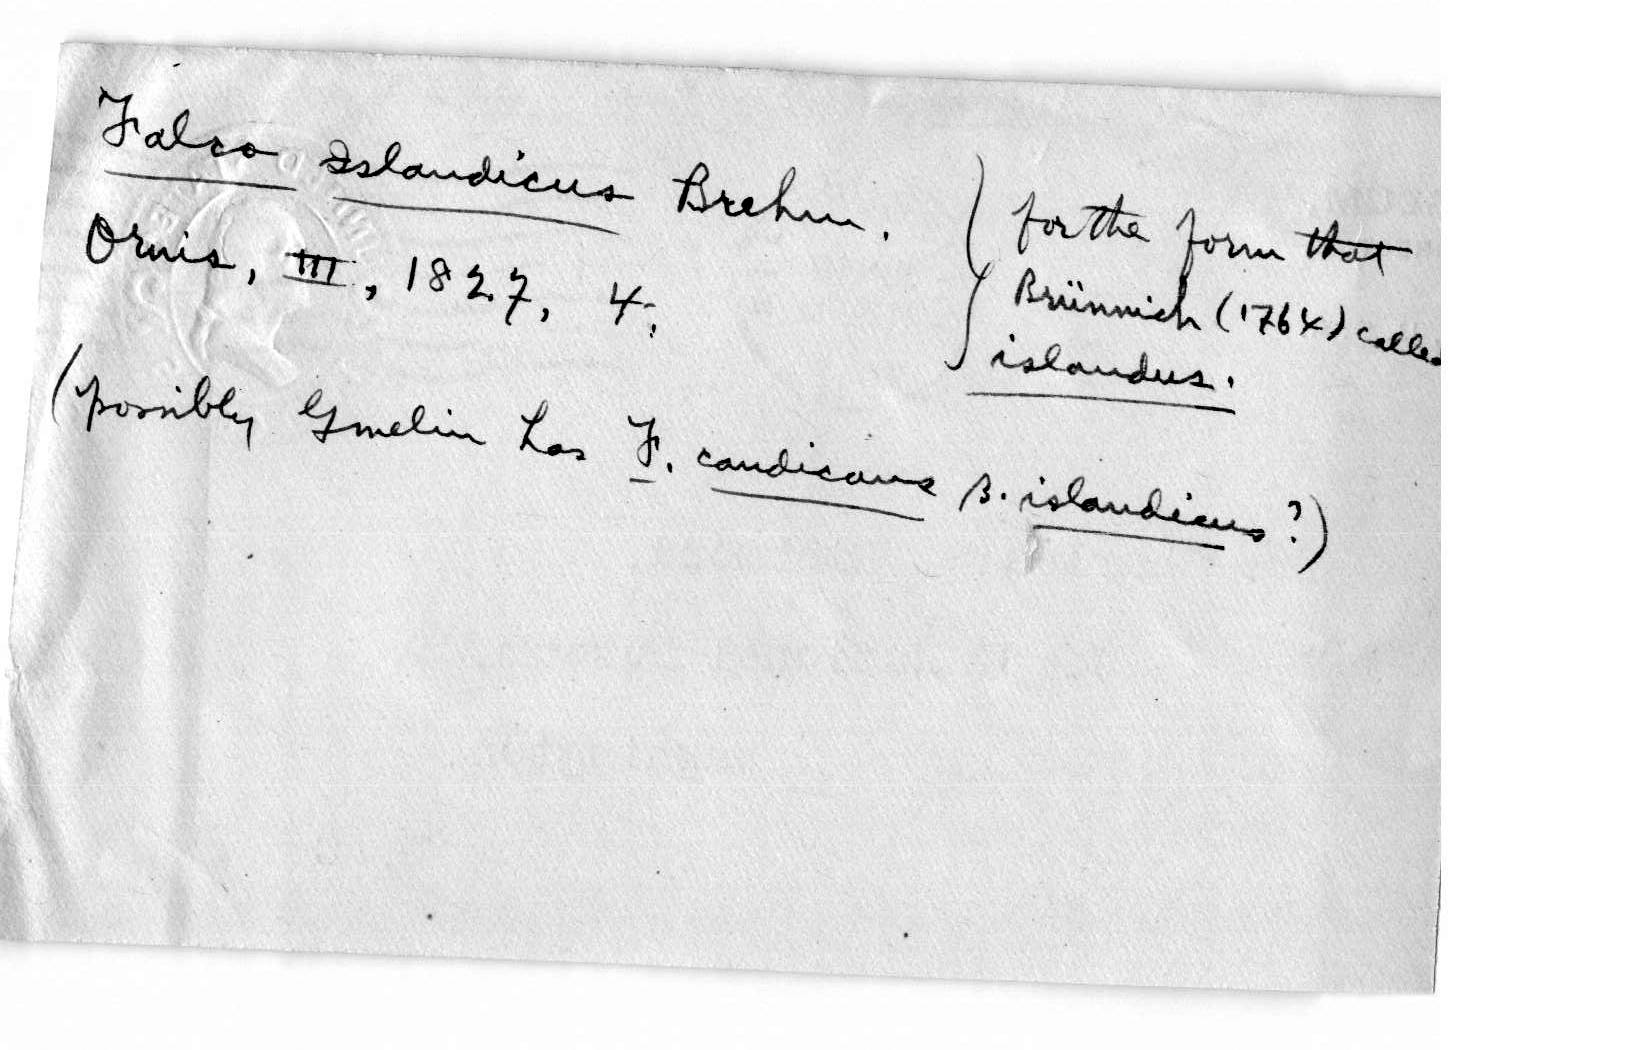 Falco Islandicus Brehm.
Ornis, III, 1827, 4.
for the form that
Brünnich (1764) called
islandus.
(possibly Gmelin has F. candicans β. islandicus?)